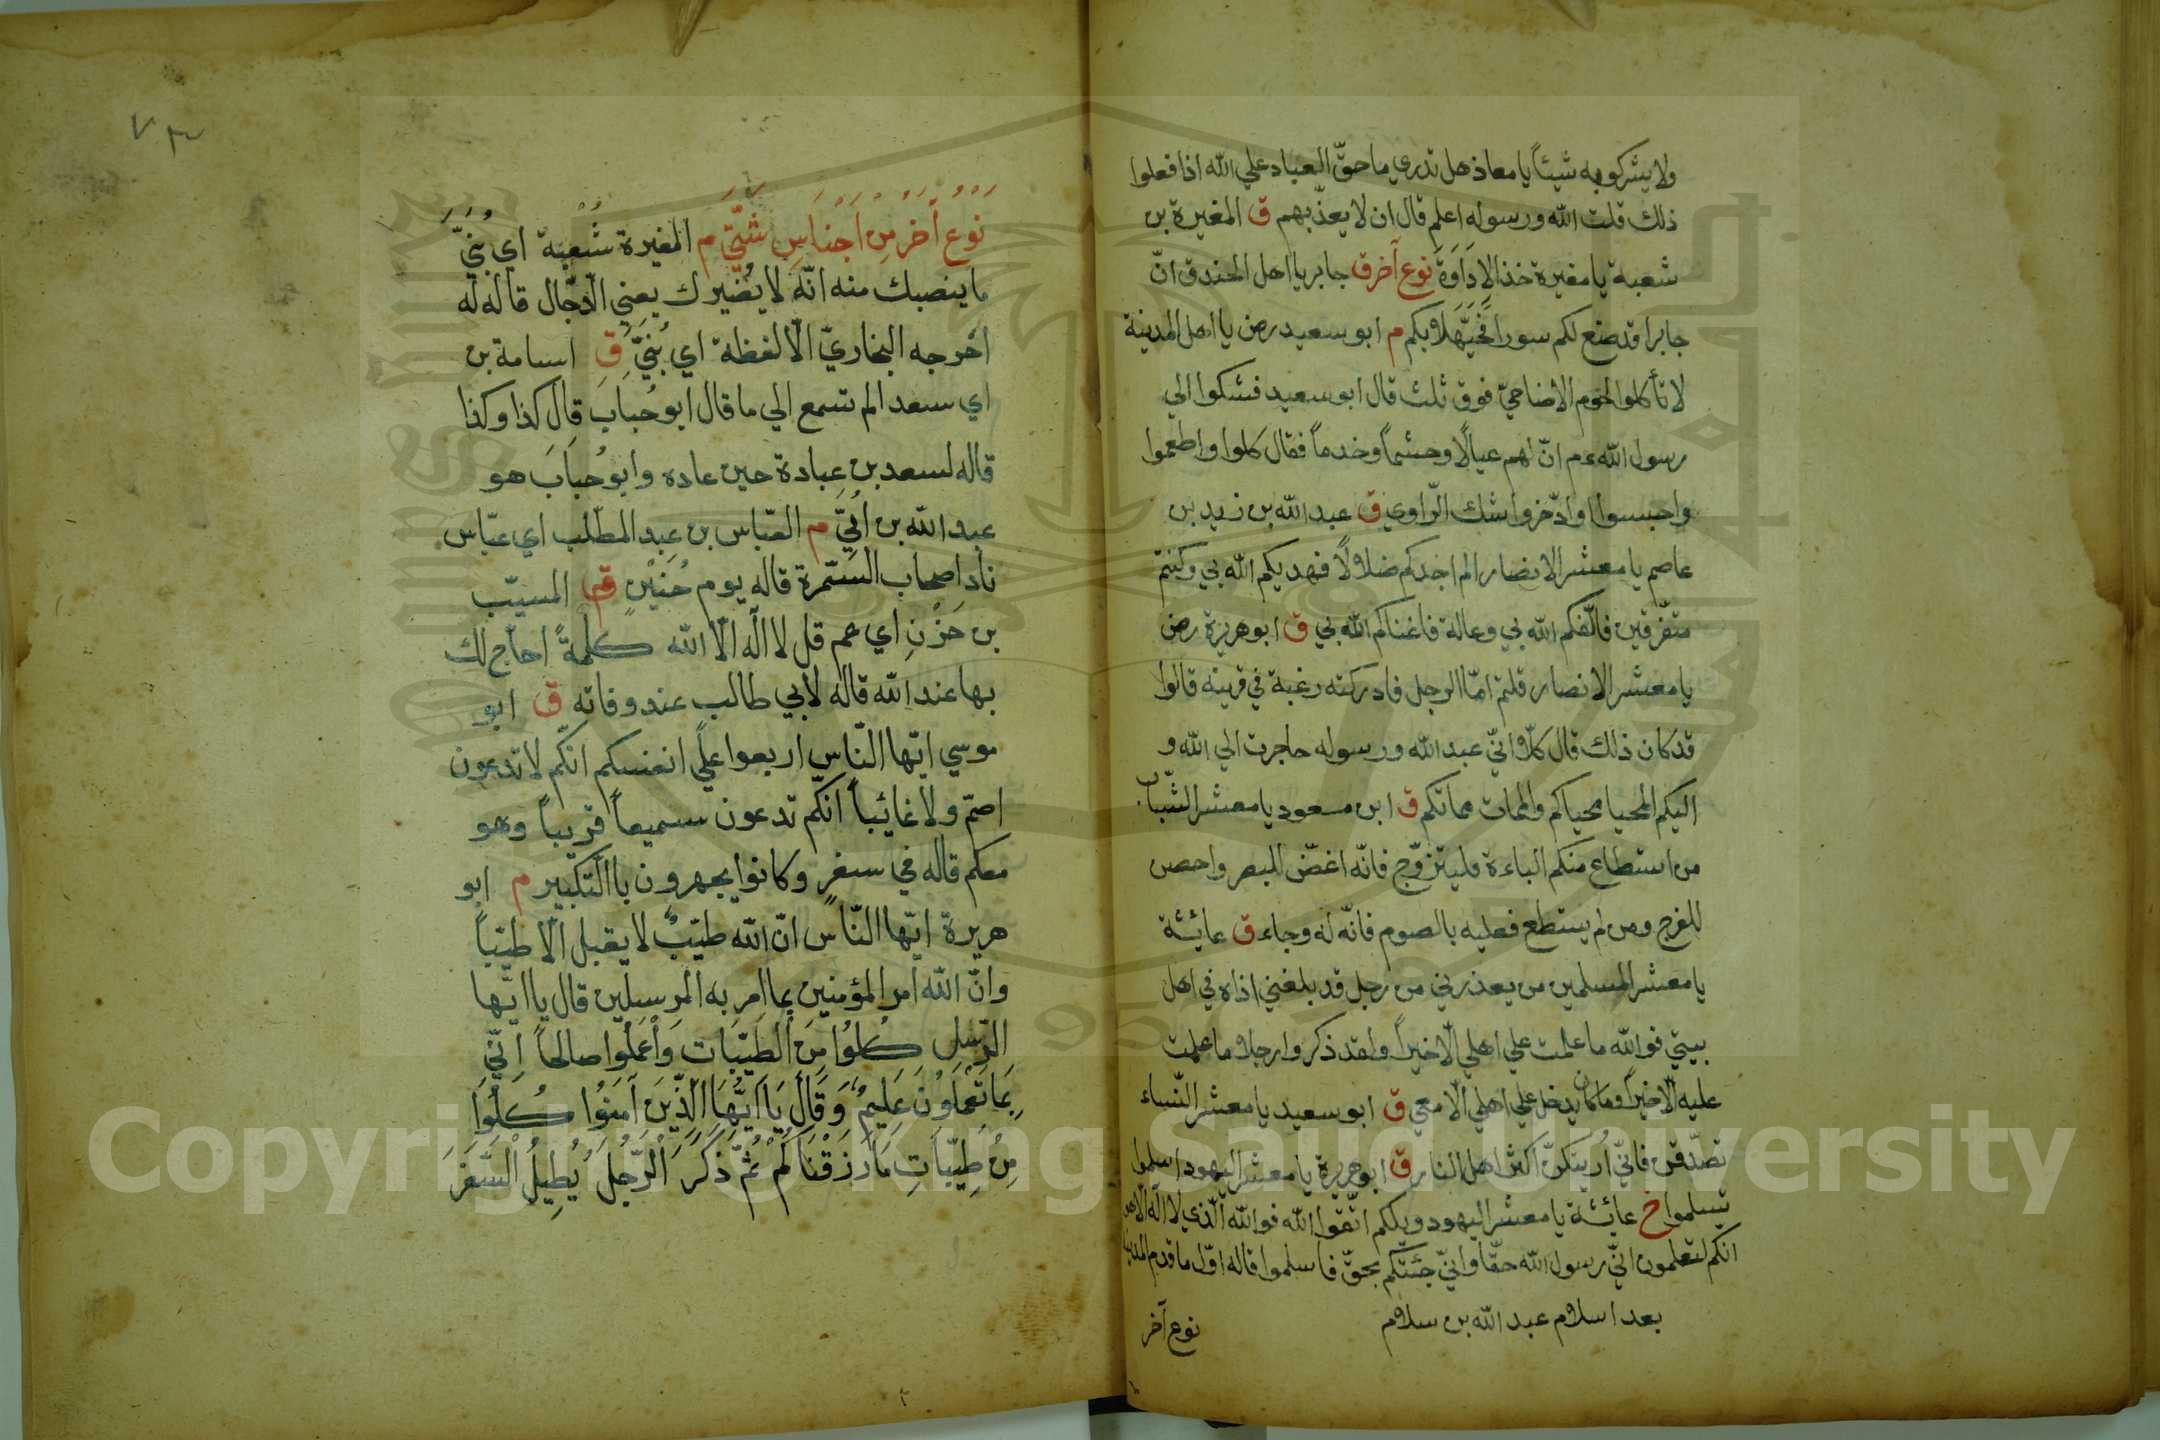 ولا يشركو به شيئاً يا معاذ هل تدري ما حقّ العباد علي الله اذا فعلوا
ذلك قلت الله ورسوله اعلم قال ان لا يعذّبهم ق المغيرة بن
شعبة يا مغيرة خذ الاِدَاوَةَ نوع آخر ق جابر يا اهل الخندق انّ
جابرا قد صنع لكم سورا فَحَيَّهَلا بكم م ابو سعيد رض يا اهل المدينة
لا تأكلوا لحوم الاضاحيّ فوق ثلث قال ابو سعيد فشكوا الي
رسول الله ءم انّ لهم عيالاً وحشماً وخدماً فقال كلوا واطعموا
واحبسوا وادّخروا شك الرّاوي ق عبد الله بن زيد بن
عاصم يا معشر الانصار الم اجدكم ضلالاً فهديكم الله بي وكنتم
متفّرقين فالّفكم الله بي وعالة فاغناكم الله بي ق ابو هريرة رض
يا معشر الانصار قلتم امّا الرجل فادركته رغبة في قرينه قالوا
قد كان ذلك قال كلّا انّي عبد الله ورسوله هاجرت الي الله و
اليكم المحيا محياكم والممات مماتكم ق ابن مسعود يا معشر الشّباب
من استطاع منكم الباءة فليتزوّج فانّه اغضّ للبصر واحصن
للفرج ومن لم يستطع فعليه بالصوم فانّه له وجاء ق عائشة
يا معشر المسلمين من يعذرني من رجل قد بلغني اذاه في اهل
بيتي فوالله ما علمت علي اهلي الّا خيراً ولقد ذكروا رجلا ما علمت
عليه الّا خيراً وما كان يدخل علي اهلي الّا معي ق ابو سعيد يا معشر النّساء
تصدّقن فانّي اُريتكنّ اكثر اهل النار ق ابو هريرة يا معشر اليهود اسلموا
تسلموا خ عائشة يا معشر اليهود ويلكم اتّقوا الله فوالله الّذي لا اله الّا هو
انكم لتعلمون انّي رسول الله حقّا وانّي جئتكم بحقّ فاسلموا قاله اوّل ما قدم المدينة
بعد اسلام عبد الله بن سلام
نوع آخر
٧٣
نَوْعٌ آخَرُ مِنْ اَجْنَاسٍ شَتَّي م المغيرة شُعْبَة اي بُنَيَّ
ما ينصبك منه انّه لا يُضيرك يعني الدّجّال قاله له
اخرجه البخاريّ الّا لفظة اي بُنَيَّ ق اسامة بن
اي سعد الم تسمع الي ما قال ابو حُباب قال كذا وكذا
قاله لسعد بن عبادة حين عاده وابو حُبابَ هو
عبد الله بن اُبَيّ م العبّاس بن عبد المطّلب اي عبّاس
ناد اصحاب السّمرة قاله يوم حُنَيْنٍ ق المسيّب
بن حَزْنٍ اي عم قل لا اله الّا الله كلمةً احاجّ لك
بها عند الله قاله لأبي طالب عند وفاته ق ابو
موسي ايّها النّاس اربعوا علي انفسكم انّكم لا تدعون
اصمّ ولا غائباً انّكم تدعون سميعاً قريباً وهو
معكم قاله في سفرٍ وكانوا يجهرون بالتكبير م ابو
هريرة ايّها النّاس انّ الله طيّبٌ لا يقبل الّا طيّباً
وانّ الله امر المؤمنين بما امر به المرسلين قال يا ايّها
الرّسل كُلُوا مِنَ الطَّيِّبَاتِ وَاعْمَلُوا صالحاً اِنّي
بِمَا تَعْمَلُونَ عَلِيمٌ وَقَالَ يَا اَيُّهَا الَّذِينَ آمَنُوا كُلُوا
مِنْ طَيِّبَاتِ مَا رَزَقْنَاكُمْ ثُمَّ ذَكَرَ الرَّجُلَ يُطِيلُ السَّفَرَ
Copyright © King Saud University